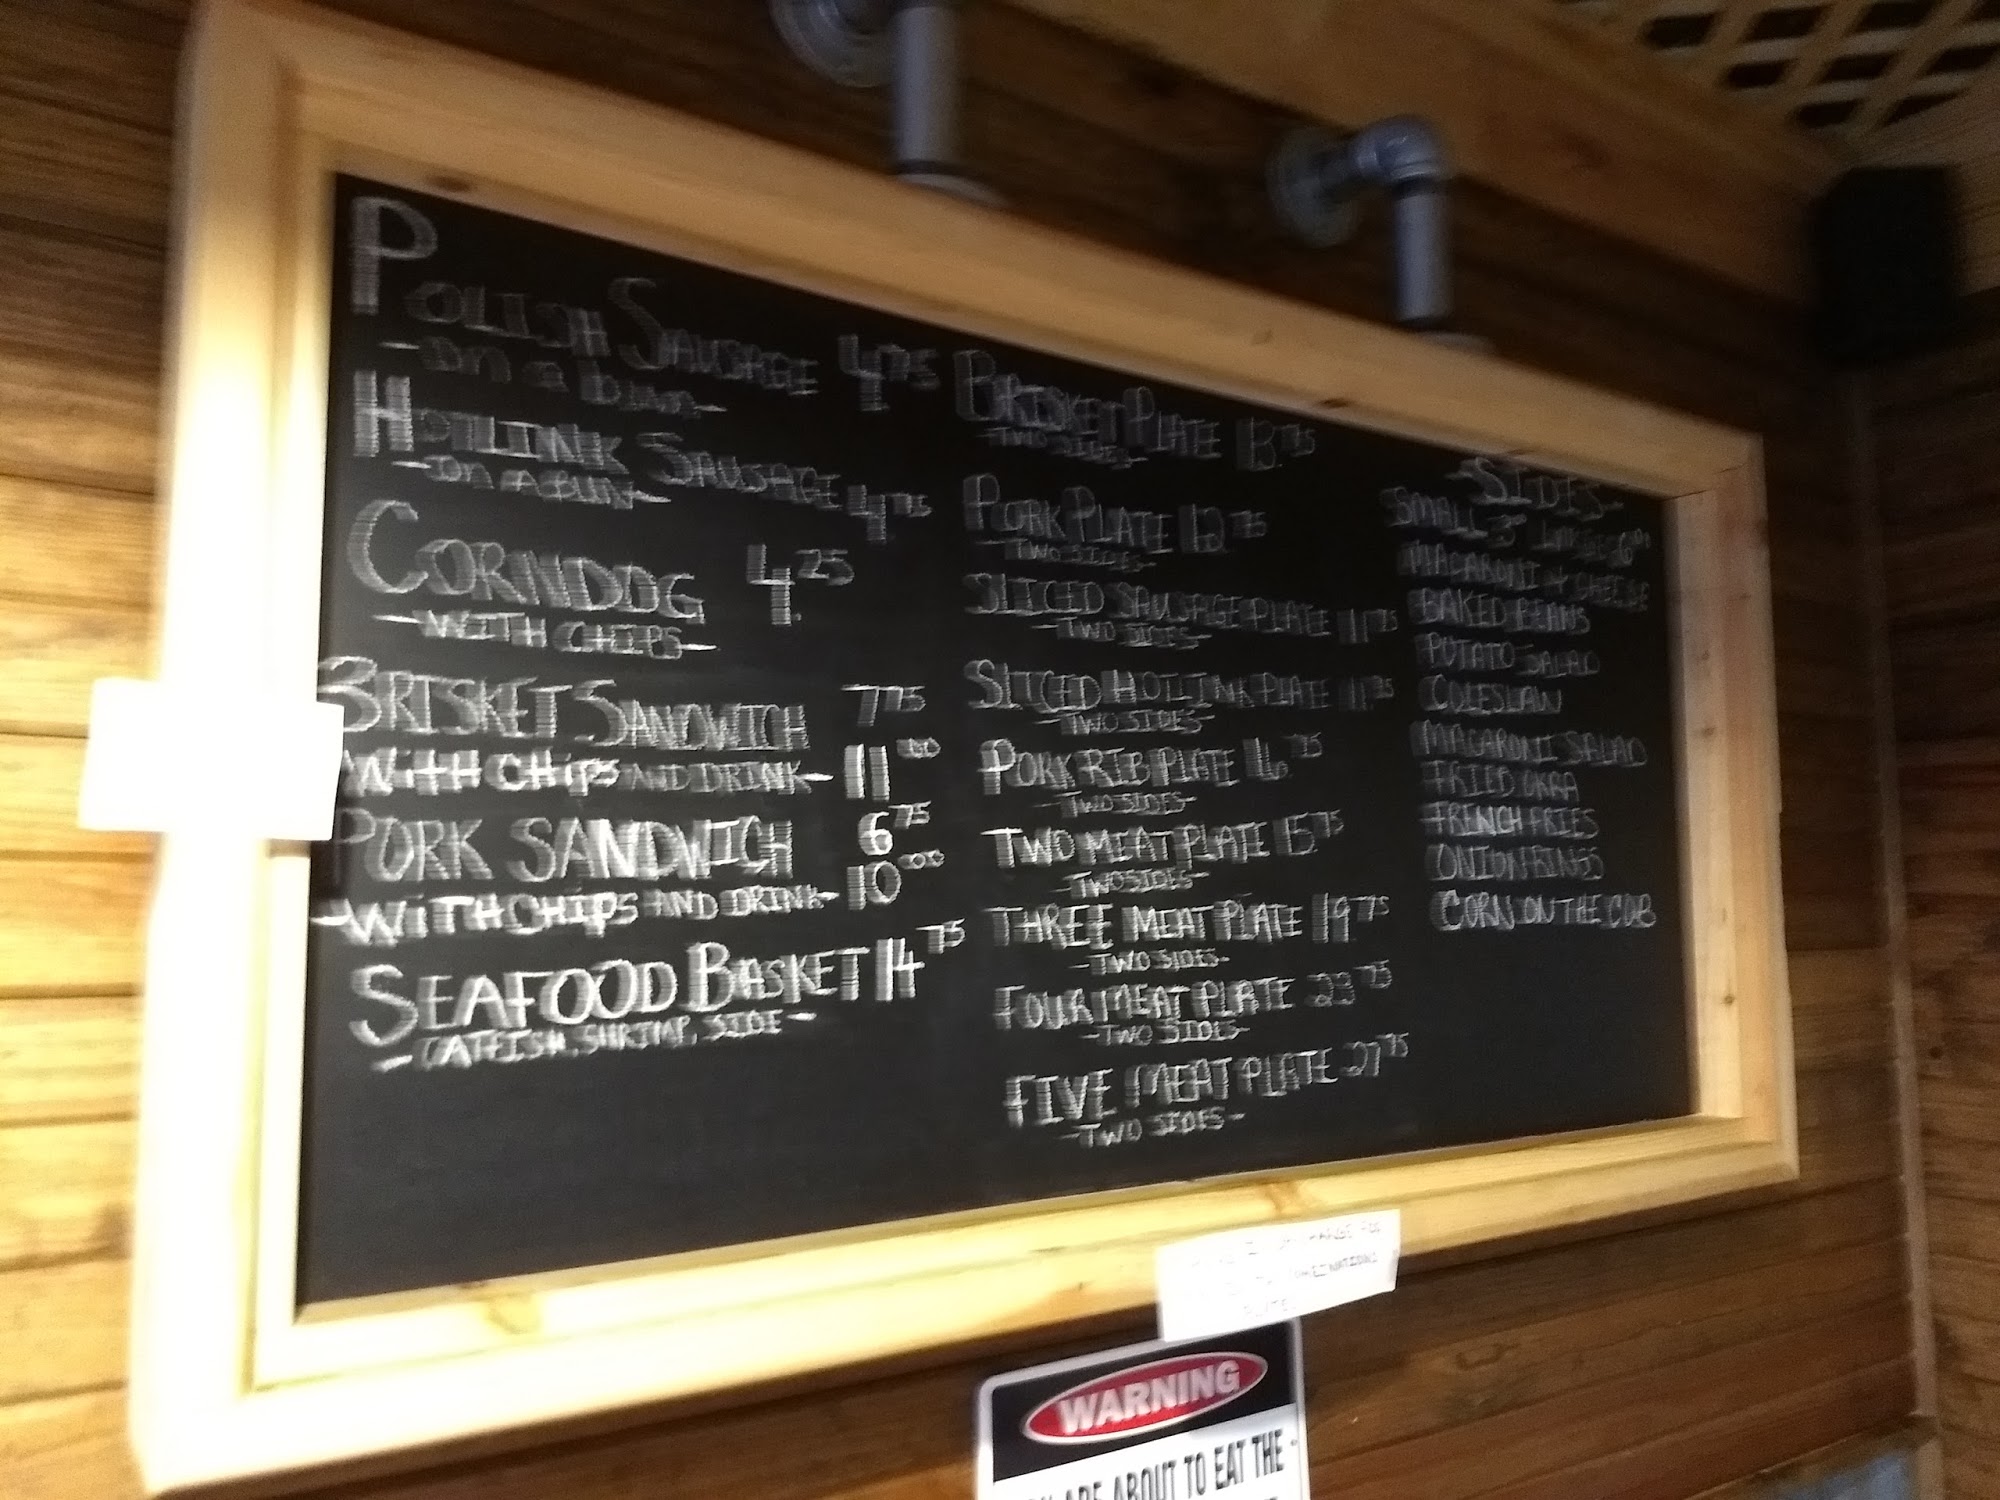 POLISH SAUSAGE 4.75
- on a bun -
HOTLINK SAUSAGE 4.75
- ON A BUN -
CORNDOG 4.25
- WITH CHIPS -
BRISKET SANDWICH 7.75
WITH CHIPS AND DRINK - 11.00
PORK SANDWICH 6.75
- WITH CHIPS AND DRINK - 10.00
SEAFOOD BASKET 14.75
- CATFISH, SHRIMP, SIDE -
BRISKET PLATE 13.75
- TWO SIDES -
PORK PLATE 12.75
- TWO SIDES -
SLICED SAUSAGE PLATE 11.75
- TWO SIDES -
SLICED HOTLINK PLATE 11.75
- TWO SIDES -
PORK RIB PLATE 16.75
- TWO SIDES -
TWO MEAT PLATE 15.75
- TWO SIDES -
THREE MEAT PLATE 19.75
- TWO SIDES -
FOUR MEAT PLATE 23.75
- TWO SIDES -
FIVE MEAT PLATE 27.75
- TWO SIDES -
- SIDES -
SMALL 3 LARGE 6.00
MACARONI & CHEESE
BAKED BEANS
POTATO SALAD
COLESLAW
MACARONI SALAD
FRIED OKRA
FRENCH FRIES
ONION RINGS
CORN ON THE COB
CHARGE FOR
COMBINATIONS
PLATE
WARNING
ARE ABOUT TO EAT THE